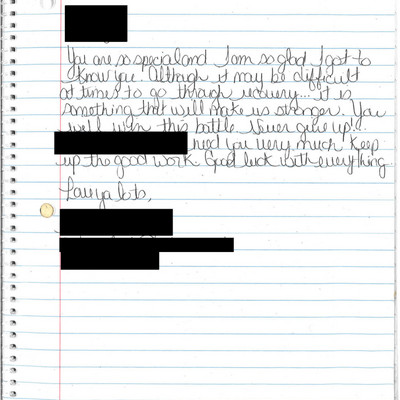 You are so special and I am so glad I got to
know you! Although it may be difficult
at times to go through recovery... it is
something that will make us stronger. You
will win this battle. Never give up!!
need you very much. Keep
up the good work. Good luck with everything.
Love ya lots,